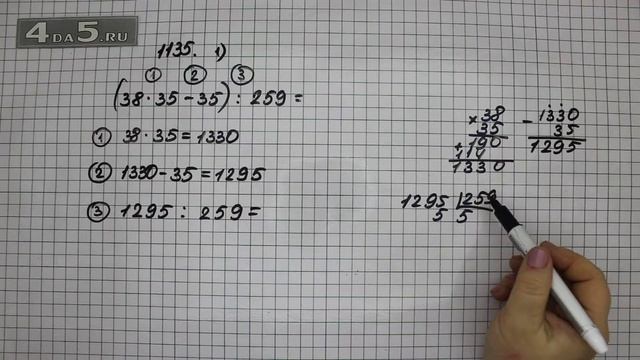 4DA5.RU
1135. 1)
① ② ③
(38·35-35):259=
① 38·35=1330
② 1330-35=1295
③ 1295:259=
×38
35
+190
114
1330
-1330
35
1295
1295 |259
5 5